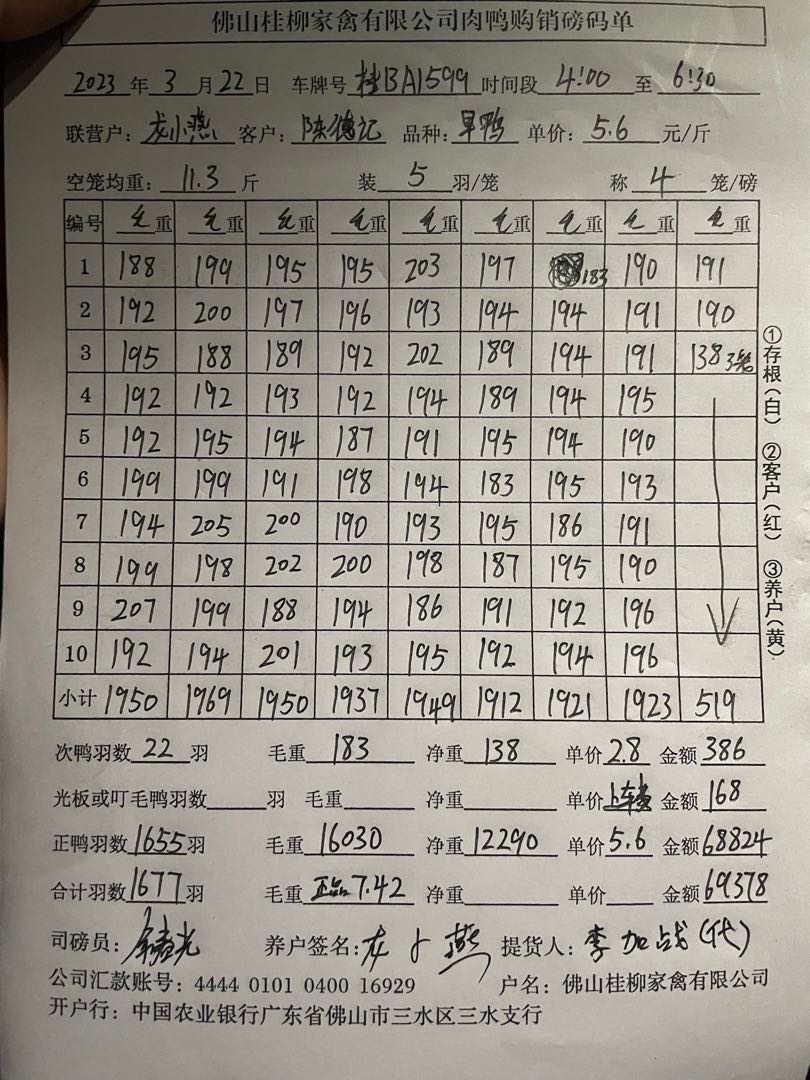 佛山桂柳家禽有限公司肉鸭购销磅码单
2023 年 3 月 22 日 车牌号 桂BA1599 时间段 4:00 至 6:30
联营户: 龙小燕 客户: 陈德记 品种: 旱鸭 单价: 5.6 元/斤
空笼均重: 11.3 斤 装 5 羽/笼 称 4 笼/磅
编号 毛重 毛重 毛重 毛重 毛重 毛重 毛重 毛重 毛重
1 188 199 195 195 203 197 183 190 191
2 192 200 197 196 193 194 194 191 190
3 195 188 189 192 202 189 194 191 138 3笼
4 192 192 193 192 194 189 194 195
5 192 195 194 187 191 195 194 190
6 199 199 191 198 194 183 195 193
7 194 205 200 190 193 195 186 191
8 199 198 202 200 198 187 195 190
9 207 199 188 194 186 191 192 196
10 192 194 201 193 195 192 194 196
小计 1950 1969 1950 1937 1949 1912 1921 1923 519
①存根(白) ②客户(红) ③养户(黄)
次鸭羽数 22 羽 毛重 183 净重 138 单价 2.8 金额 386
光板或叮毛鸭羽数 羽 毛重 净重 单价 上车费 金额 168
正鸭羽数 1655 羽 毛重 16030 净重 12290 单价 5.6 金额 68824
合计羽数 1677 羽 毛重 正品7.42 净重 单价 金额 69378
司磅员: 养户签名: 龙小燕 提货人: 李加战(代)
公司汇款账号: 4444 0101 0400 16929 户名: 佛山桂柳家禽有限公司
开户行: 中国农业银行广东省佛山市三水区三水支行